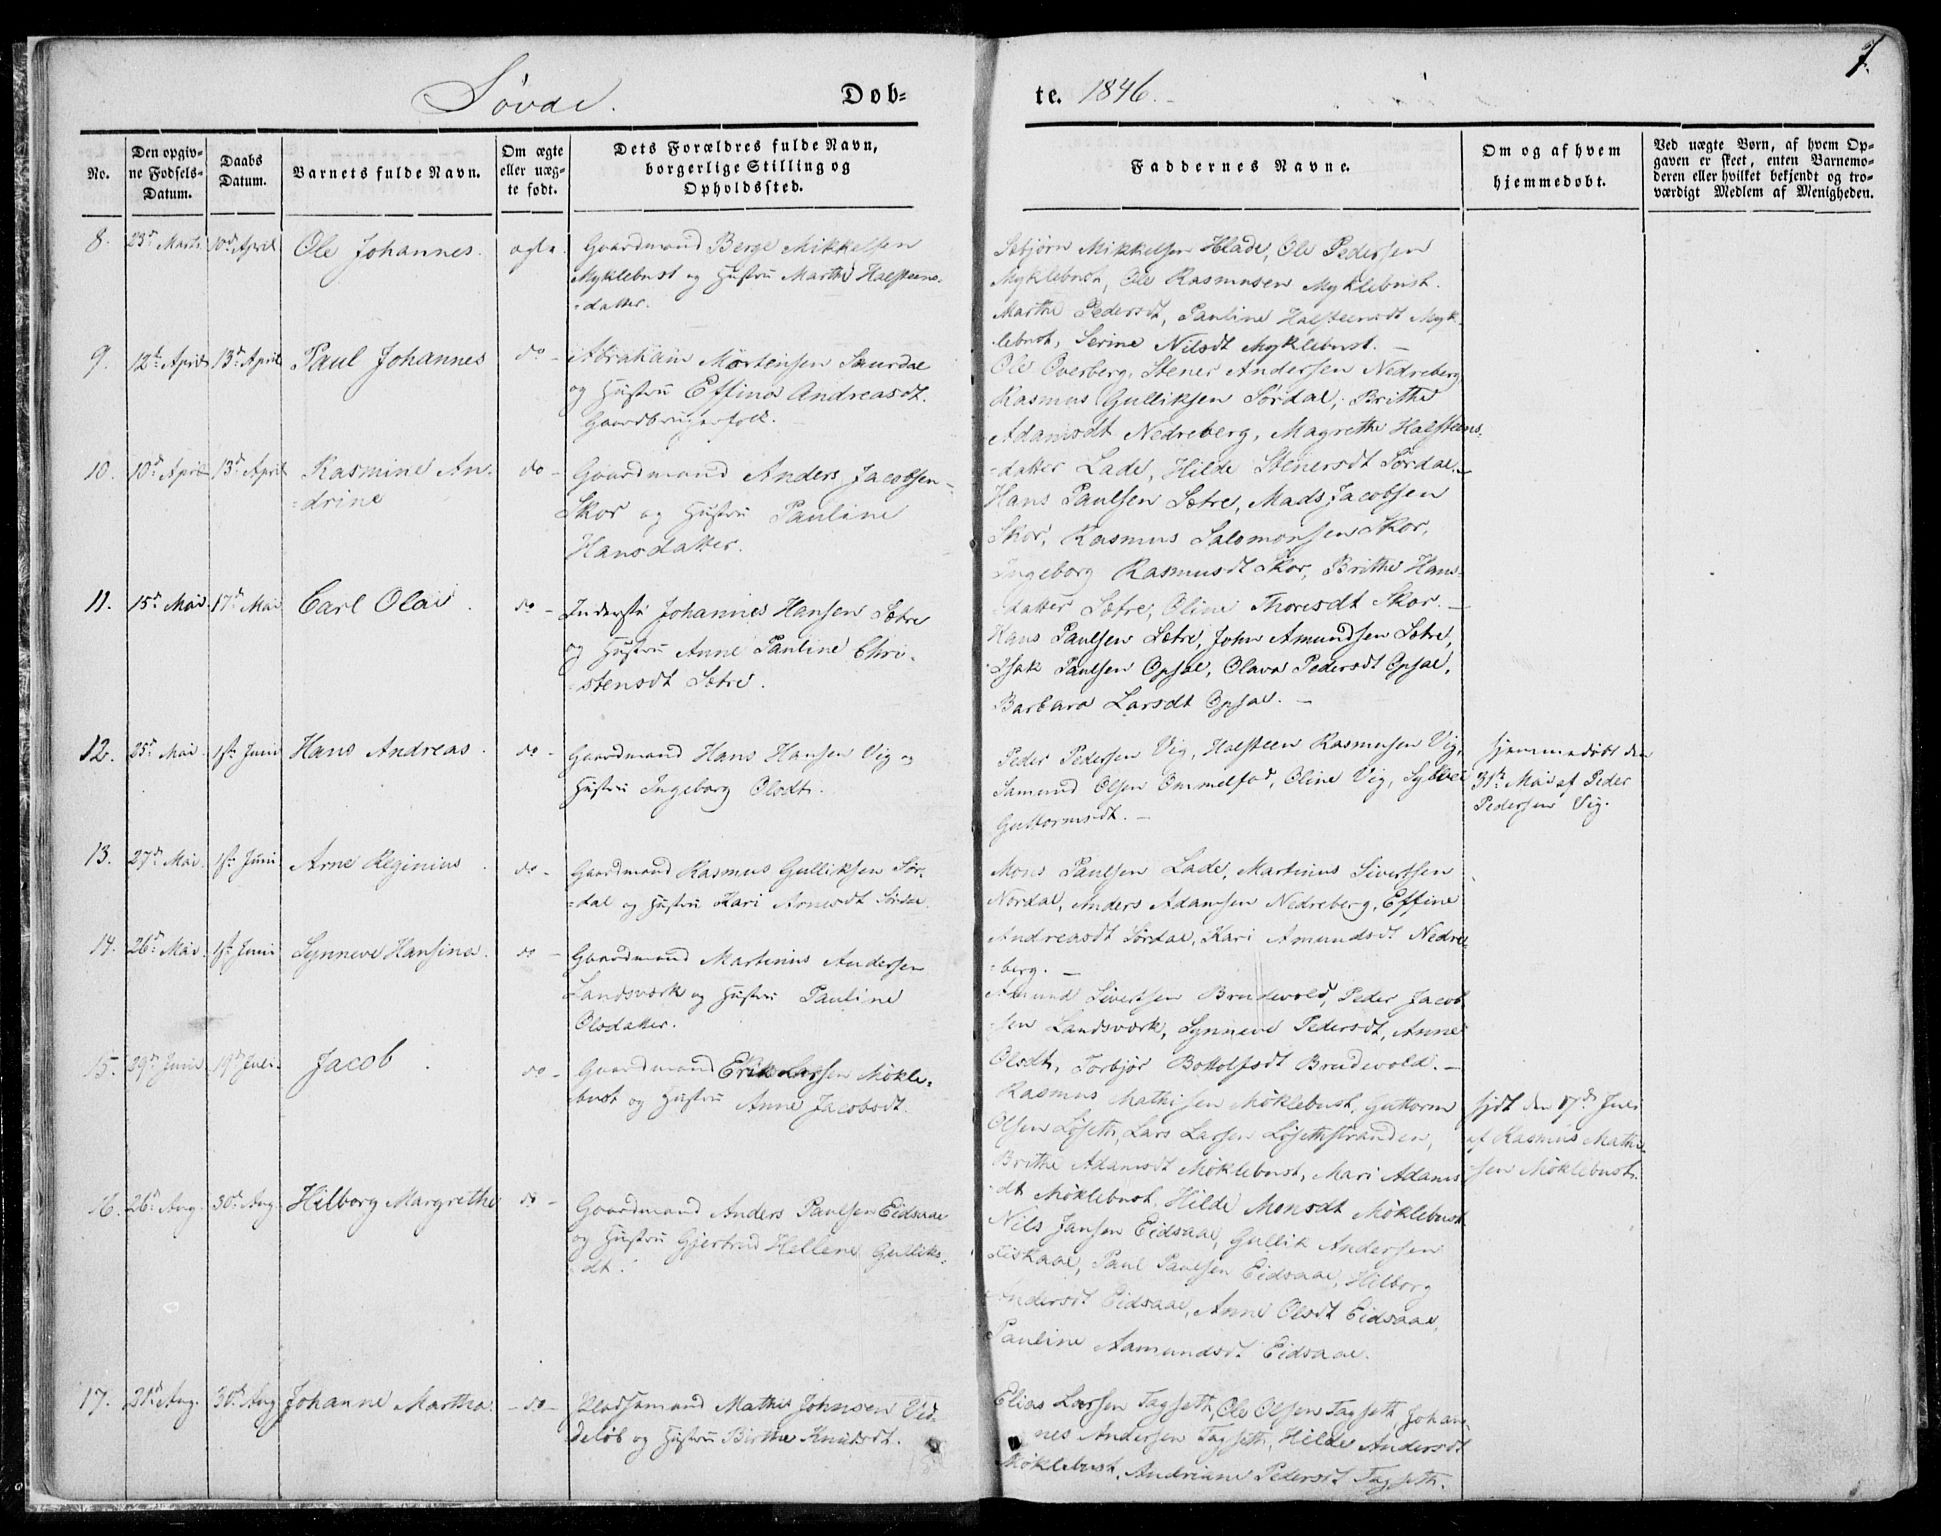 7.
Søvde. Dob-
te. 1846.
No.
Den opgiv-
ne Fødsels-
Datum.
Daabs
Datum.
Barnets fulde Navn.
Om ægte
eller uæg-
te født.
Dets Forældres fulde Navn,
borgerlige Stilling og
Opholdssted.
Faddernes Navne.
Om og af hvem
hjemmedøbt.
Ved uægte Børn, af hvem Op-
gaven er skeet, enten Barnemo-
deren eller hvilket bekjendt og tro-
værdigt Medlem af Menigheden.
8. 23d Marts 10d April Ole Johannes. ægte Gaardmand Berge Mikkelsen
Myklebust og Hustru Marthe Halsteens-
-datter.
Sebjørn Mikkelsen Hlade, Ole Pedersen
Myklebust, Ole Rasmusen Myklebust.
Marthe Pedersdt, Pauline Halsteensdt Myk-
lebust, Serine Nilsdt Myklebust. -
9. 12te April 13d April Paul Johannes do - Abraham Mortensen Saurdal
og Hustru Effina Andreasdt.
Gaardbrugerfolk.
Ole Overberg, Stener Andersen Nedreberg,
Rasmus Gulliksen Sørdal, Brithe
Adamsdt Nedreberg, Magrethe Halsteens-
-datter Lade, Hilde Stenersdt Sørdal. -
10. 10d April 13d April Rasmine An-
-drine do - Gaardmand Anders Jacobsen
Skor og Hustru Pauline
Hansdatter.
Hans Paulsen Sætre, Mads Jacobsen
Skor, Rasmus Salomonsen Skor,
Ingeborg Rasmusdt Skor, Brithe Hans-
-datter Sætre, Oline Thoresdt Skor. -
11. 15d Mai 17d Mai Carl Olai. do - Inderste Johannes Hansen Sætre
og Hustru Anne Pauline Chri-
-stensdt Sætre.
Hans Paulsen Sætre, John Amundsen Sætre,
Isak Paulsen Opsal, Olava Pedersdt Opsal,
Barbara Larsdt Opsal. -
12. 25d Mai. 1ste Juni Hans Andreas. do - Gaardmand Hans Hansen Vig og
Hustru Ingeborg Olsdt.
Peder Pedersen Vig, Halsteen Rasmusen Vig,
Samund Olsen Ommelfod, Oline Vig, Sylvei
Guttormsdt. -
hjemmedøbt den
31te Mai af Peder
Pedersen Vig.
13. 27d Mai. 1ste Juni Arne Reginius. do - Gaardmand Rasmus Gulliksen Sør-
-dal og Hustru Kari Arnesdt Sørdal.
Mons Paulsen Lade, Martinus Sivertsen
Nordal, Anders Adamsen Nedreberg, Effine
Andreasdt Sørdal, Kari Amundsdt Nedre-
-berg. -
14. 26d Mai 1ste Juni Synneve Hansina. do - Gaardmand Martinus Andersen
Landsværk og Hustru Pauline
Olsdatter.
Amund Sivertsen Brudevold, Peder Jacob-
-sen Landsværk, Synneve Pedersdt, Anne
Olsdt, Torbjør Bottolfsdt Brudevold. -
15. 29de Juni 19d Juli Jacob. do - Gaardmand Erik Larsen Møkle-
bust og Hustru Anne Jacobsdt.
Rasmus Mathisen Møklebust, Guttorm
Olsen Løseth, Lars Larsen Løsethstranden,
Brithe Adamsdt Møklebust, Mari Adams-
-dt Møklebust, Hilde Monsdt Møklebust.
hjdt den 17de Juli
af Rasmus Mathi-
-sen Møklebust.
16. 26d Aug. 30d Aug. Hilborg Margrethe do - Gaardmand Anders Paulsen Eidsaae
og Hustru Gjertrud Hellene Gulliks-
dt.
Nils Jansen Eidsaae, Gullik Andersen
Fiskaae, Paul Paulsen Eidsaae, Hilborg
Andersdt Eidsaae, Anne Olsdt Eidsaae,
Pauline Aamundsdt Eidsaae.
17. 21d Aug. 30d Aug Johanne Martha. - do - Pladsemand Mathis Johnsen Vid-
deløb og Hustru Birthe Knudsdt.
Elias Larsen Tagseth, Ole Olsen Tagseth, Johan-
nes Andersen Tagseth, Hilde Andersdt
Møklebust, Andriane Pedersdt Tagseth.